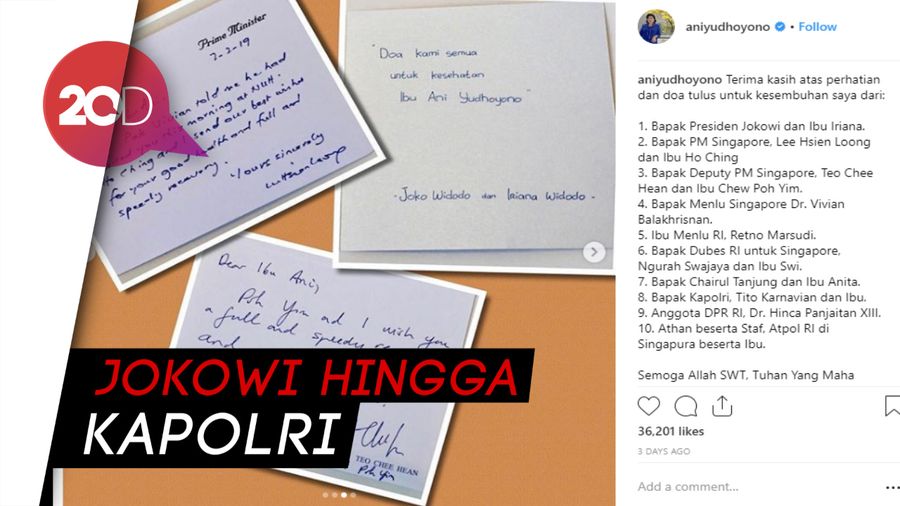 Prime Minister
7-2-19
told me he had
this morning at NUH.
Ching and I send our best wishes
for your good health and full and
speedy recovery.
Yours sincerely
20D
"Doa kami semua
untuk kesehatan
Ibu Ani Yudhoyono"
- Joko Widodo dan Iriana Widodo -
Dear Ibu Ani,
Poh Yim and I wish you
a full and speedy
and
TEO CHEE HEAN
Poh Yim
JOKOWI HINGGA
KAPOLRI
aniyudhoyono • Follow
aniyudhoyono Terima kasih atas perhatian
dan doa tulus untuk kesembuhan saya dari:
1. Bapak Presiden Jokowi dan Ibu Iriana.
2. Bapak PM Singapore, Lee Hsien Loong
dan Ibu Ho Ching
3. Bapak Deputy PM Singapore, Teo Chee
Hean dan Ibu Chew Poh Yim.
4. Bapak Menlu Singapore Dr. Vivian
Balakhrisnan.
5. Ibu Menlu RI, Retno Marsudi.
6. Bapak Dubes RI untuk Singapore,
Ngurah Swajaya dan Ibu Swi.
7. Bapak Chairul Tanjung dan Ibu Anita.
8. Bapak Kapolri, Tito Karnavian dan Ibu.
9. Anggota DPR RI, Dr. Hinca Panjaitan XIII.
10. Athan beserta Staf, Atpol RI di
Singapura beserta Ibu.
Semoga Allah SWT, Tuhan Yang Maha
36,201 likes
3 DAYS AGO
Add a comment...